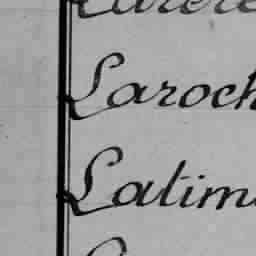 Laroch
Latim